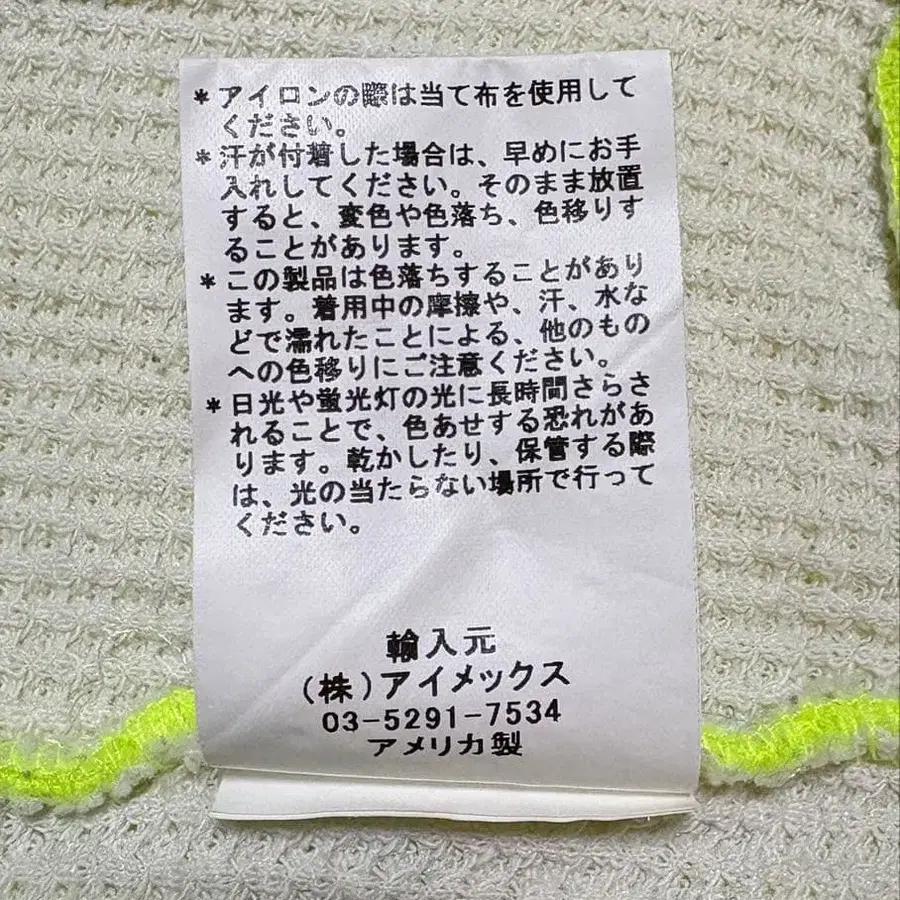 *アイロンの際は当て布を使用して
ください。
*汗が付着した場合は、早めにお手
入れしてください。そのまま放置
すると、変色や色落ち、色移りす
ることがあります。
*この製品は色落ちすることがあり
ます。着用中の摩擦や、汗、水な
どで濡れたことによる、他のもの
への色移りにご注意ください。
*日光や蛍光灯の光に長時間さらさ
れることで、色あせする恐れがあ
ります。乾かしたり、保管する際
は、光の当たらない場所で行って
ください。
輸入元
(株)アイメックス
03-5291-7534
アメリカ製